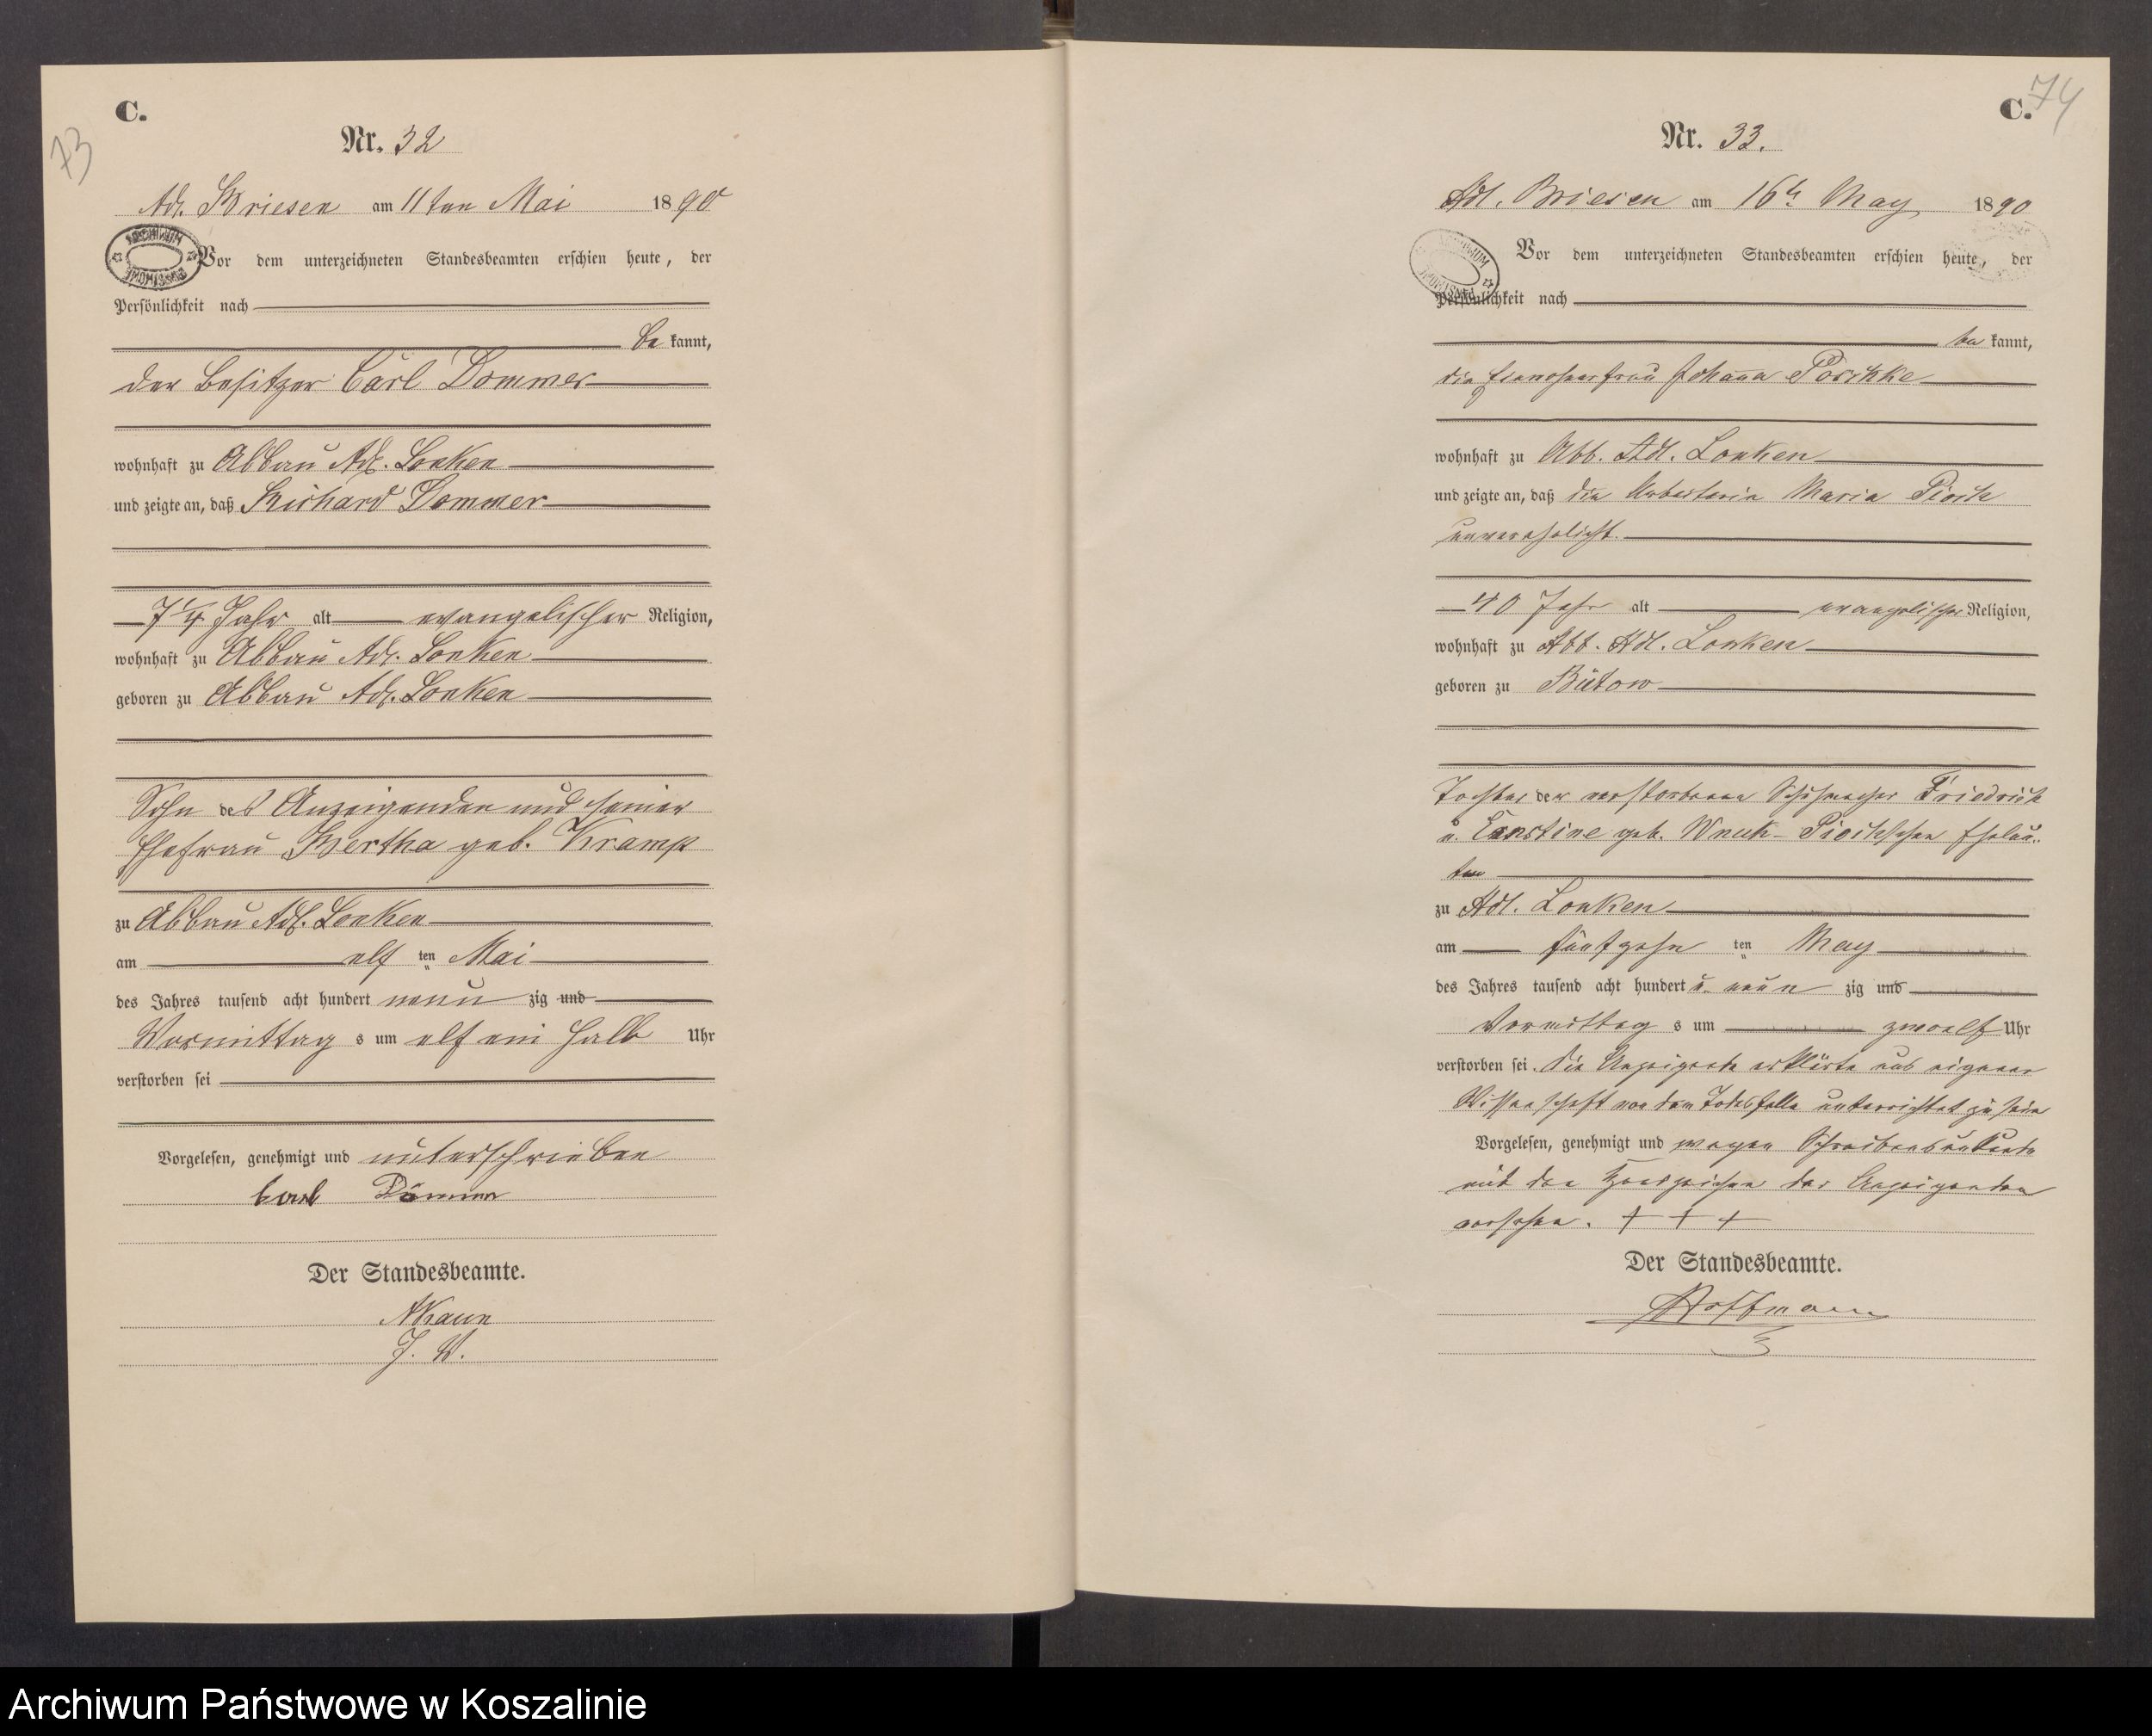 C.
73
Nr. 32
Adl. Briesen am 11ten Mai 1890
ARCHIWUM
Vor dem unterzeichneten Standesbeamten erschien heute, der
Persönlichkeit nach
bekannt,
der Besitzer Carl Dommer
wohnhaft zu Abbau Adl. Lonken
und zeigte an, daß Richard Dommer
7 1/4 Jahr alt evangelischer Religion,
wohnhaft zu Abbau Adl. Lonken
geboren zu Abbau Adl. Lonken
Sohn des Anzeigenden und seiner
Ehefrau Bertha geb. Kramp
zu Abbau Adl. Lonken
am elf ten Mai
des Jahres tausend acht hundert neun zig und
Vormittag s um elf ein halb Uhr
verstorben sei
Vorgelesen, genehmigt und unterschrieben
Carl Dommer
Der Standesbeamte.
J. V.
C.
74
Nr. 33.
Adl. Briesen am 16t May 1890
Vor dem unterzeichneten Standesbeamten erschien heute, der
Persönlichkeit nach
bekannt,
die Johanna
wohnhaft zu Abb. Adl. Lonken
und zeigte an, daß die Arbeiterin Maria Piock
unverehelicht.
40 Jahr alt evangelischer Religion,
wohnhaft zu Abb. Adl. Lonken
geboren zu Bütow
Tochter der verstorbenen Schuhmacher Friedrich
u. Ernstine geb. Wnuk- Piockschen Eheleu-
ten
zu Adl. Lonken
am fünfzehn ten May
des Jahres tausend acht hundert u. neun zig und
Vormittag s um zwoelf Uhr
verstorben sei. Die Anzeigende erklärte aus eigener
Wissenschaft von dem Todesfalle unterrichtet zu sein
Vorgelesen, genehmigt und wegen Schreibensunkunde
mit den Handzeichen der Anzeigenden
versehen. + + +
Der Standesbeamte.
Hoffmann
Archiwum Państwowe w Koszalinie